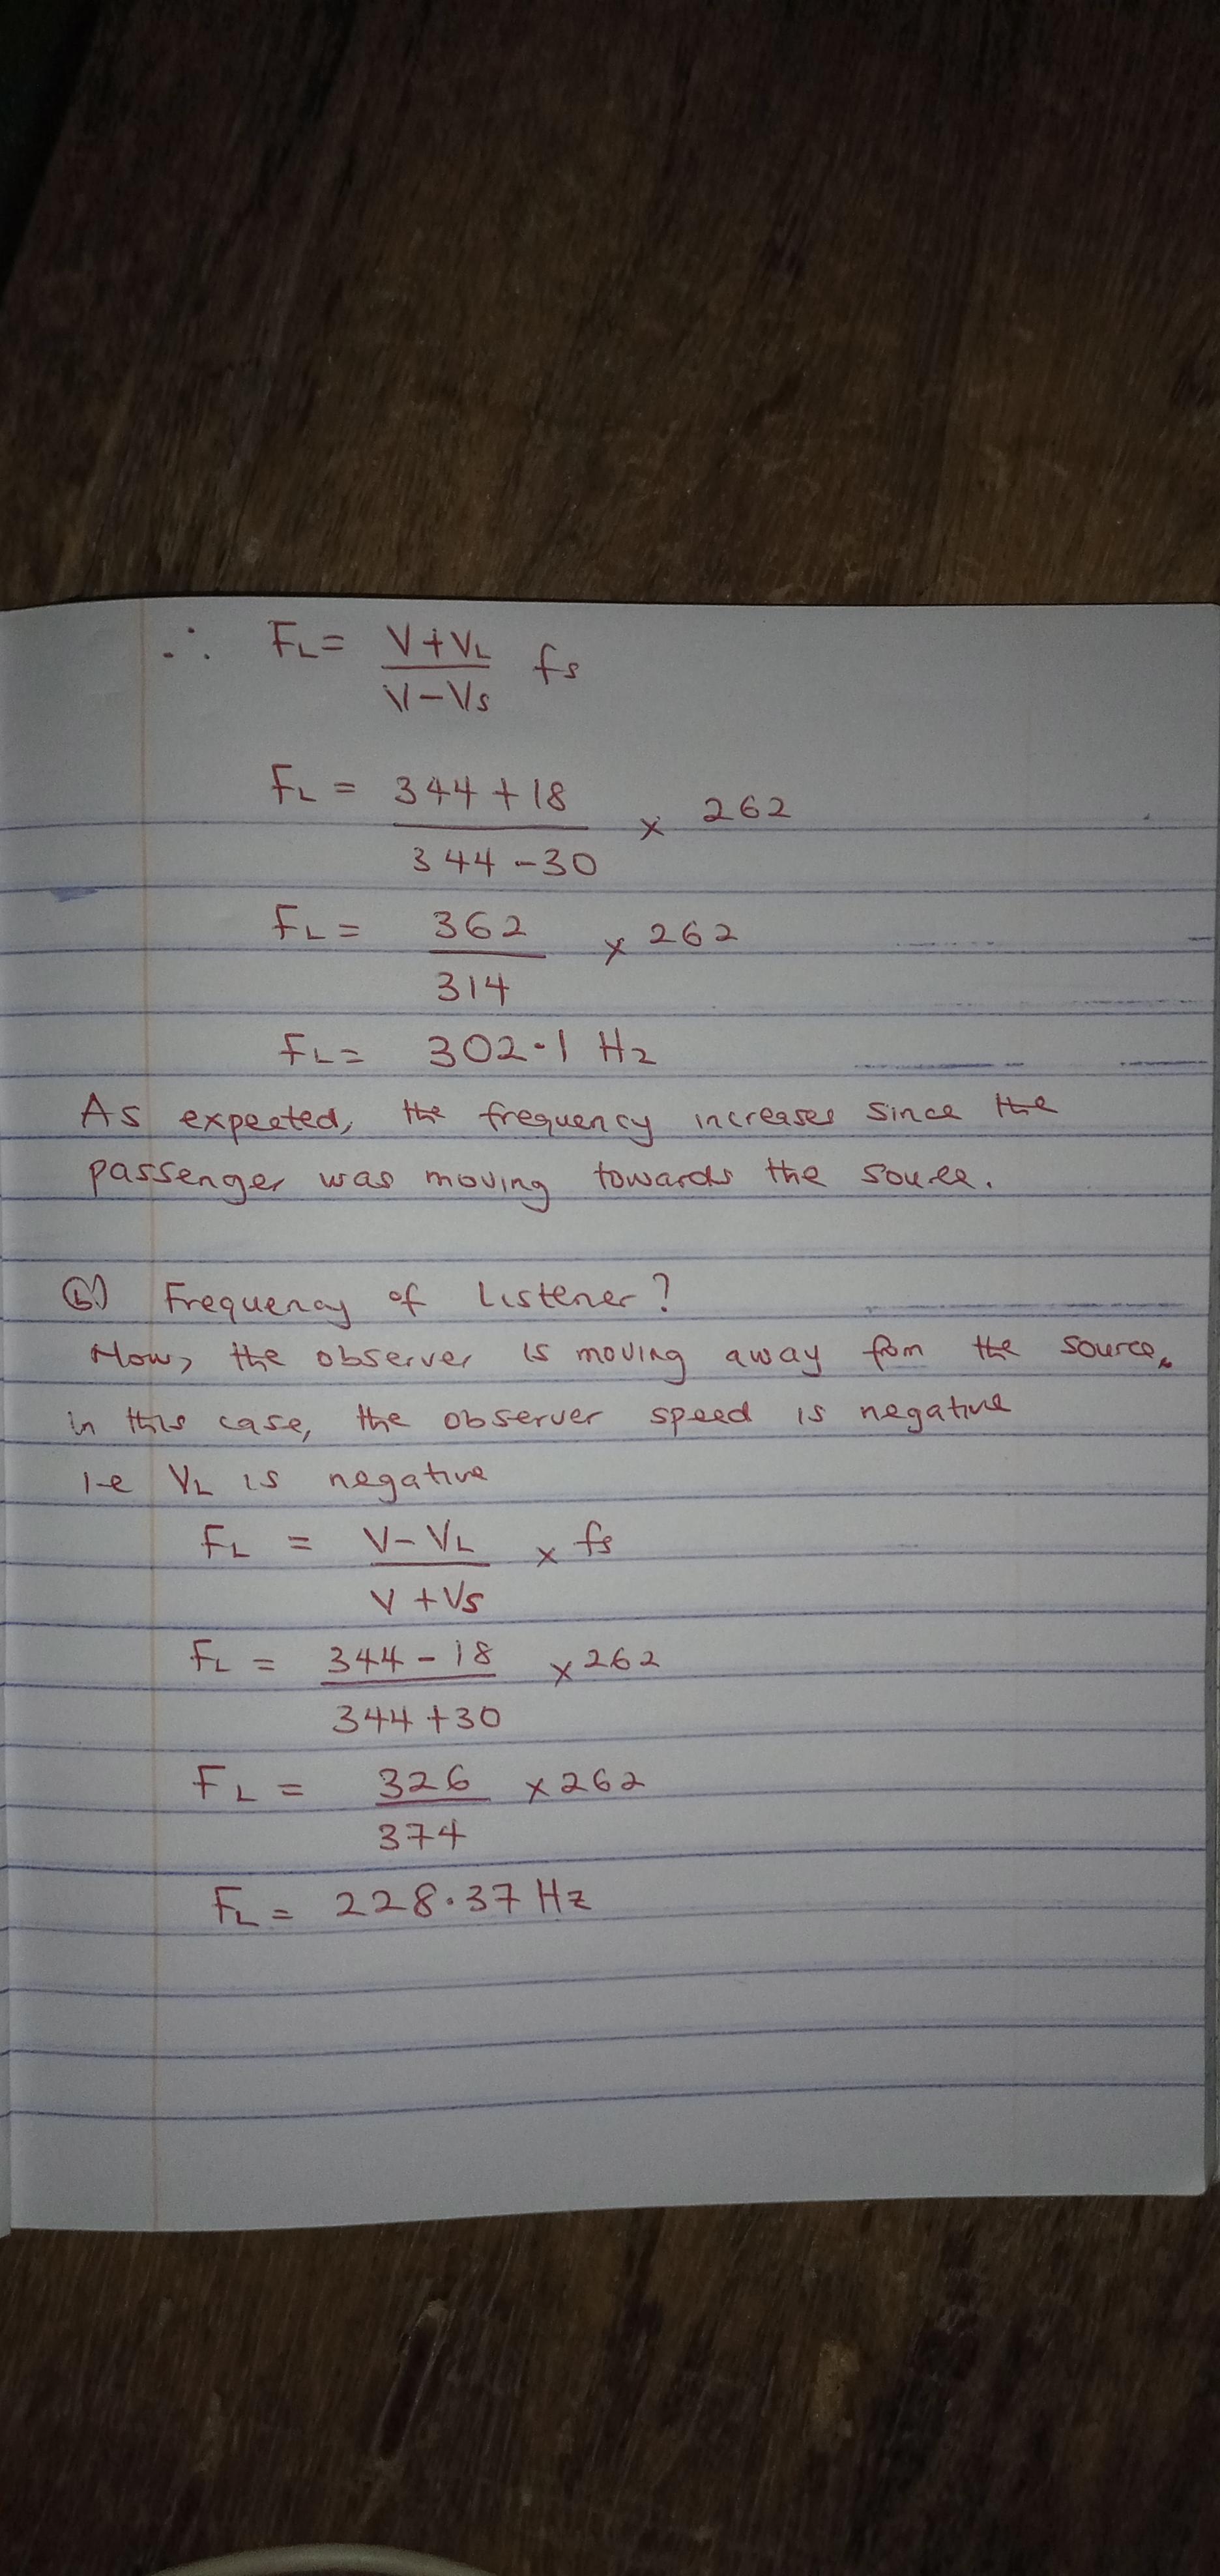 ∴ FL = V+VL fs
V-Vs
FL = 344+18 × 262
344-30
FL = 362 × 262
314
FL = 302.1 Hz
As expected, the frequency increases since the
passenger was moving towards the source.
(b) Frequency of Listener?
Now, the observer is moving away from the source.
in this case, the observer speed is negative
i.e VL is negative
FL = V-VL × fs
V+Vs
FL = 344-18 × 262
344+30
FL = 326 × 262
374
FL = 228.37 Hz